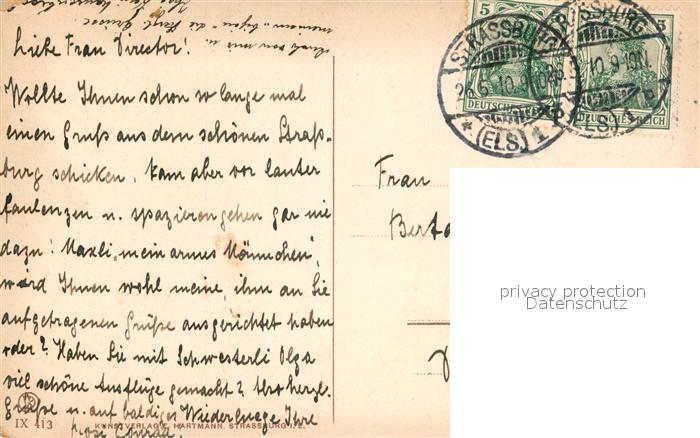 Liebe Frau Director!
Wollte Ihnen schon so lange mal
einen Gruß aus dem schönen Straß-
burg schicken, kam aber vor lauter
faulenzen u. spazierengehen gar nie
dazu! Maxli, "mein armes Männchen",
wird Ihnen wohl meine, ihm an Sie
aufgetragenen Grüße ausgerichtet haben
oder? Haben Sie mit Schwesterli Olga
viel schöne Ausflüge gemacht? herzl.
Grüße u. auf baldiges Ihre
Conrad.
IX 413
KUNSTVERLAG HARTMANN, STRASSBURG I. E.
5 5
STRASSBURG
DEUTSCHES REICH
(ELS)
STRASSBURG
DEUTSCHES REICH
(ELS)
Frau
Berta
privacy protection
Datenschutz